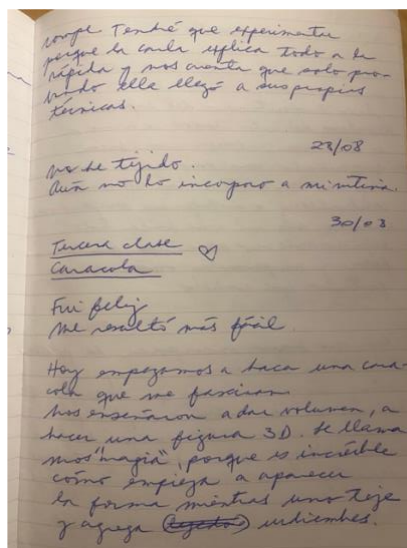 rompe. Tendré que experimentar
porque la carla explica todo a la
rápida y nos cuenta que solo pro-
bando ella llegó a sus propias
técnicas.
23/08
no he tejido.
Aún no lo incorporo a mi rutina.
30/03
Tercera clase ♡
Caracola
Fui feliz
me resultó más fácil
Hoy empezamos a hacer una cara-
cola que me fascinan
nos enseñaron a dar volumen, a
hacer una figura 3D. Le llama
mos "magia", porque es increíble
cómo empieza a aparecer
la forma mientras uno teje
y agrega urdiembres.